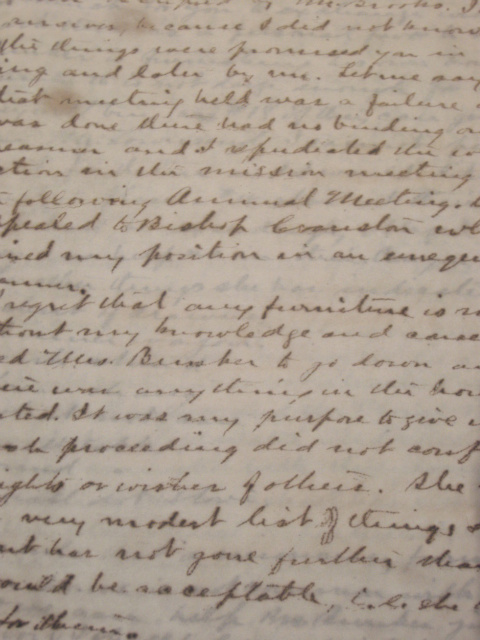 Mr. Brooks. I
because I did not know
the things were promised you in
ing and later by me. Let me say
that meeting held was a failure
was done there had no binding or
reason and I repudiated the
ction in the mission meeting
following Annual Meeting.
pealed to Bishop Cranston wh
ined my position in an
manner.
regret that any furniture is
thout my knowledge and
ed Mrs. Bunker to go down a
ere was anything in the hou
ted. It was my purpose to give
such proceeding did not conf
ights or wishes of others. She
very modest list of things
but has not gone further than
would be acceptable, i.e. she
for them.